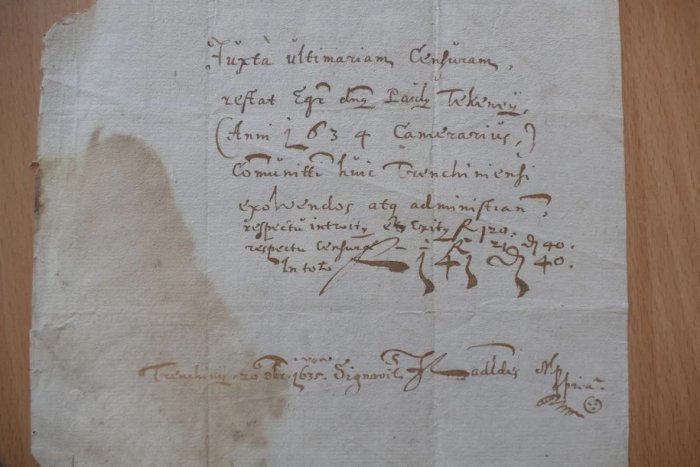 Juxtà ultimariam Censuram,
restat Egr: dnũs Pauly Tekeney,
(Anni 1634 Camerarius,)
Comunitti huic Trenchiniensi
exolvendos atq administran̄,
respectu introity et Exity f 120.
respectu Censuræ f 21 d 40.
In toto f 141 d 40.
Trenchiny 20 1635. Signavit